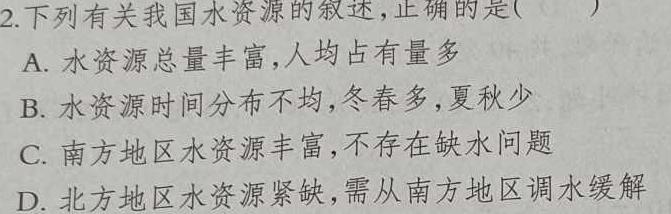 2.下列有关我国水资源的叙述,正确的是(　　)
A. 水资源总量丰富,人均占有量多
B. 水资源时间分布不均,冬春多,夏秋少
C. 南方地区水资源丰富,不存在缺水问题
D. 北方地区水资源紧缺,需从南方地区调水缓解